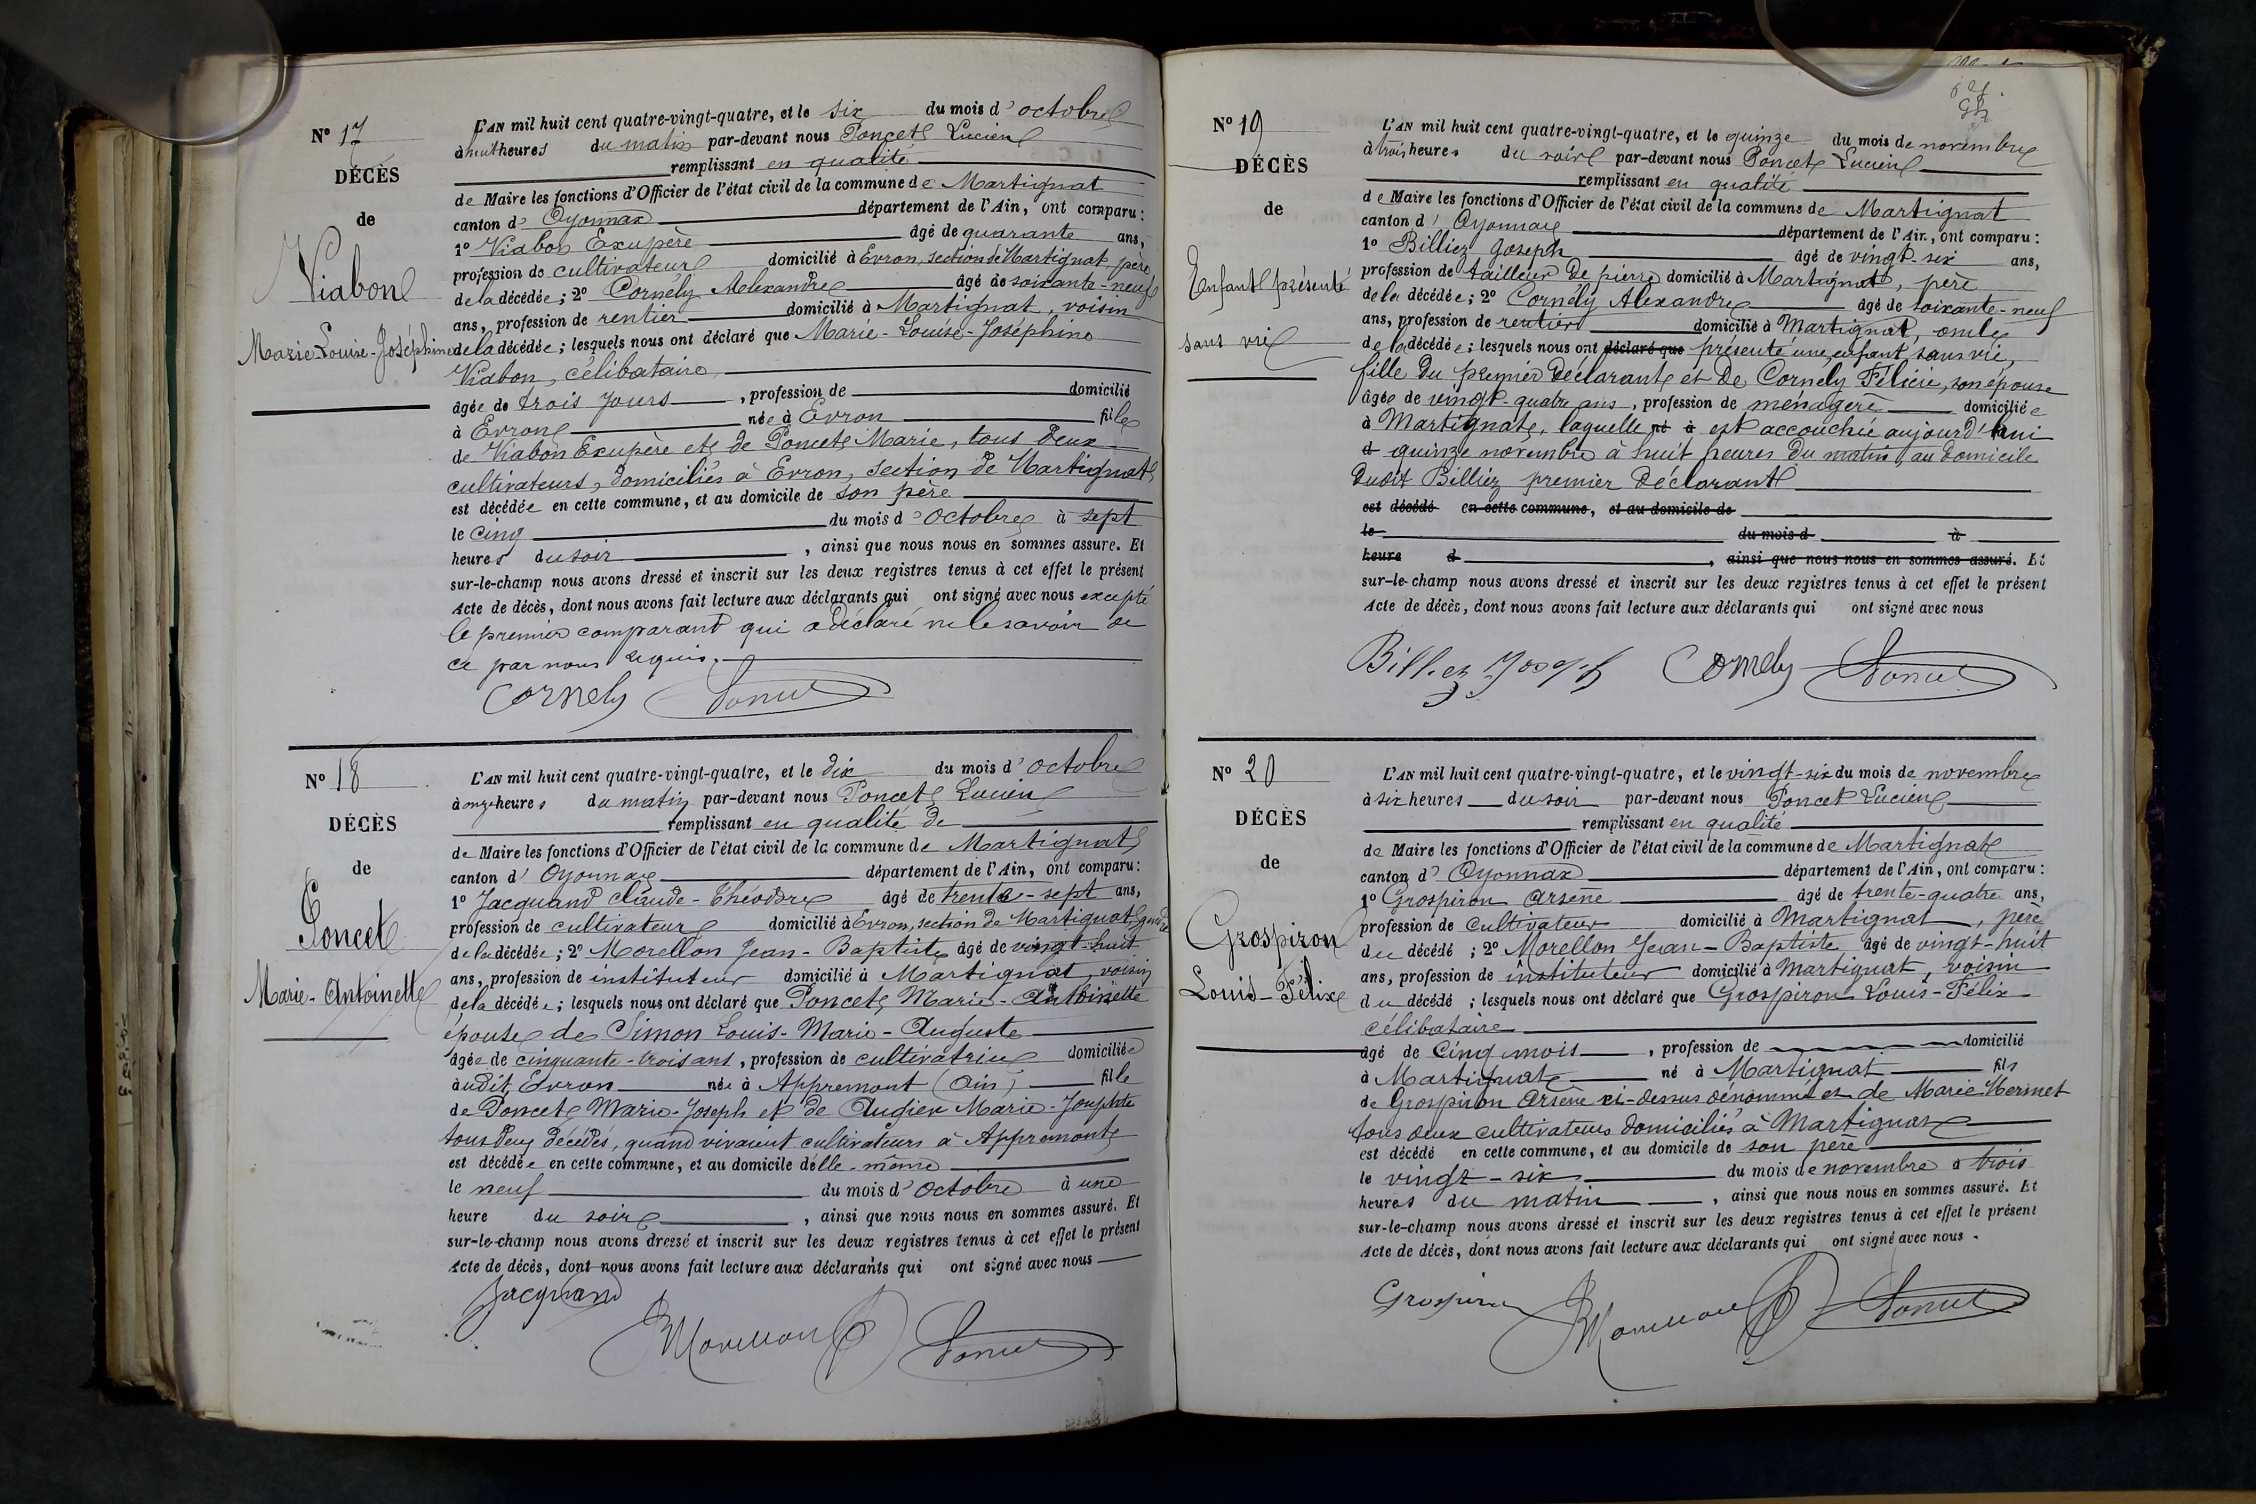 N° 17
DÉCÈS
de
Viabon
Marie-Louise-Joséphine
L'AN mil huit cent quatre-vingt-quatre, et le six du mois d'octobre
à huit heures du matin par-devant nous Poncet Lucien
remplissant en qualité
de Maire les fonctions d'Officier de l'état civil de la commune de Martignat
canton d'Oyonnax département de l'Ain, ont comparu :
1° Viabon Exupère âgé de quarante ans,
profession de cultivateur domicilié à Evron, section de Martignat, père
de la décédée ; 2° Cornély Alexandre âgé de soixante-neuf
ans, profession de rentier domicilié à Martignat, voisin
de la décédée ; lesquels nous ont déclaré que Marie-Louise-Joséphine
Viabon, célibataire
âgée de trois jours, profession de domicilié
à Evron née à Evron fille
de Viabon Exupère et de Poncet Marie, tous deux
cultivateurs, domiciliés à Evron, section de Martignat
est décédée en cette commune, et au domicile de son père
le cinq du mois d'octobre à sept
heures du soir, ainsi que nous nous en sommes assuré. Et
sur-le-champ nous avons dressé et inscrit sur les deux registres tenus à cet effet le présent
Acte de décès, dont nous avons fait lecture aux déclarants qui ont signé avec nous excepté
le premier comparant qui a déclaré ne le savoir de
ce par nous requis.
Cornely Poncet
N° 18
DÉCÈS
de
Poncet
Marie-Antoinette
L'AN mil huit cent quatre-vingt-quatre, et le dix du mois d'octobre
à onze heures du matin par-devant nous Poncet Lucien
remplissant en qualité de
de Maire les fonctions d'Officier de l'état civil de la commune de Martignat
canton d'Oyonnax département de l'Ain, ont comparu :
1° Jacquand Claude-Théodore âgé de trente-sept ans,
profession de cultivateur domicilié à Evron, section de Martignat, gendre
de la décédée ; 2° Morellon Jean-Baptiste âgé de vingt-huit
ans, profession de instituteur domicilié à Martignat, voisin
de la décédée ; lesquels nous ont déclaré que Poncet Marie-Antoinette
épouse de Simon Louis-Marie-Auguste
âgée de cinquante-trois ans, profession de cultivatrice domiciliée
audit Evron née à Appremont (Ain) fille
de Poncet Marie-Joseph et de Augier Marie-Josephte
tous deux décédés, quand vivaient cultivateurs à Appremont
est décédée en cette commune, et au domicile d'elle-même
le neuf du mois d'octobre à une
heure du soir, ainsi que nous nous en sommes assuré. Et
sur-le-champ nous avons dressé et inscrit sur les deux registres tenus à cet effet le présent
Acte de décès, dont nous avons fait lecture aux déclarants qui ont signé avec nous
Jacquand
Morellon Poncet
N° 19
DÉCÈS
de
Enfant présenté
sans vie
L'AN mil huit cent quatre-vingt-quatre, et le quinze du mois de novembre
à trois heures du soir par-devant nous Poncet Lucien
remplissant en qualité
de Maire les fonctions d'Officier de l'état civil de la commune de Martignat
canton d'Oyonnax département de l'Ain, ont comparu :
1° Billiez Joseph âgé de vingt-six ans,
profession de tailleur de pierre domicilié à Martignat, père
de la décédée ; 2° Cornély Alexandre âgé de soixante-neuf
ans, profession de rentier domicilié à Martignat, oncle
de la décédée ; lesquels nous ont déclaré que présenté une enfant sans vie,
fille du premier déclarant et de Cornely Félicie, son épouse
âgée de vingt-quatre ans, profession de ménagère domiciliée
à Martignat, laquelle né à est accouchée aujourd'hui
d quinze novembre à huit heures du matin, au domicile
dudit Billiez premier déclarant
est décédé en cette commune, et au domicile de
le du mois d à
heure d, ainsi que nous nous en sommes assuré. Et
sur-le-champ nous avons dressé et inscrit sur les deux registres tenus à cet effet le présent
Acte de décès, dont nous avons fait lecture aux déclarants qui ont signé avec nous
Billiez Joseph Cornely Poncet
N° 20
DÉCÈS
de
Grospiron
Louis-Félix
L'AN mil huit cent quatre-vingt-quatre, et le vingt-six du mois de novembre
à six heures du soir par-devant nous Poncet Lucien
remplissant en qualité
de Maire les fonctions d'Officier de l'état civil de la commune de Martignat
canton d'Oyonnax département de l'Ain, ont comparu :
1° Grospiron Arsène âgé de trente-quatre ans,
profession de cultivateur domicilié à Martignat, père
du décédé ; 2° Morellon Jean-Baptiste âgé de vingt-huit
ans, profession de instituteur domicilié à Martignat, voisin
du décédé ; lesquels nous ont déclaré que Grospiron Louis-Félix
célibataire
âgé de cinq mois, profession de domicilié
à Martignat né à Martignat fils
de Grospiron Arsène ci-dessus dénommé et de Marie Mermet
tous deux cultivateurs domiciliés à Martignat
est décédé en cette commune, et au domicile de son père
le vingt-six du mois de novembre à trois
heures du matin, ainsi que nous nous en sommes assuré. Et
sur-le-champ nous avons dressé et inscrit sur les deux registres tenus à cet effet le présent
Acte de décès, dont nous avons fait lecture aux déclarants qui ont signé avec nous.
Grospiron Morellon Poncet